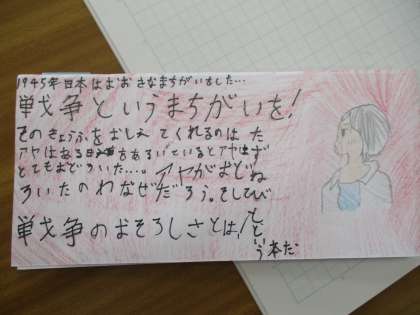 1945年日本はおおきなまちがいをした…
戦争というまちがいを!
そのきょうふをおしえてくれるのは た
アヤはある日 をあるいているとアヤは ず
とてもおどろいた…。アヤがおどね
ろいたのわなぜだろう。そしてび
戦争のおそろしさとは!
という本だ